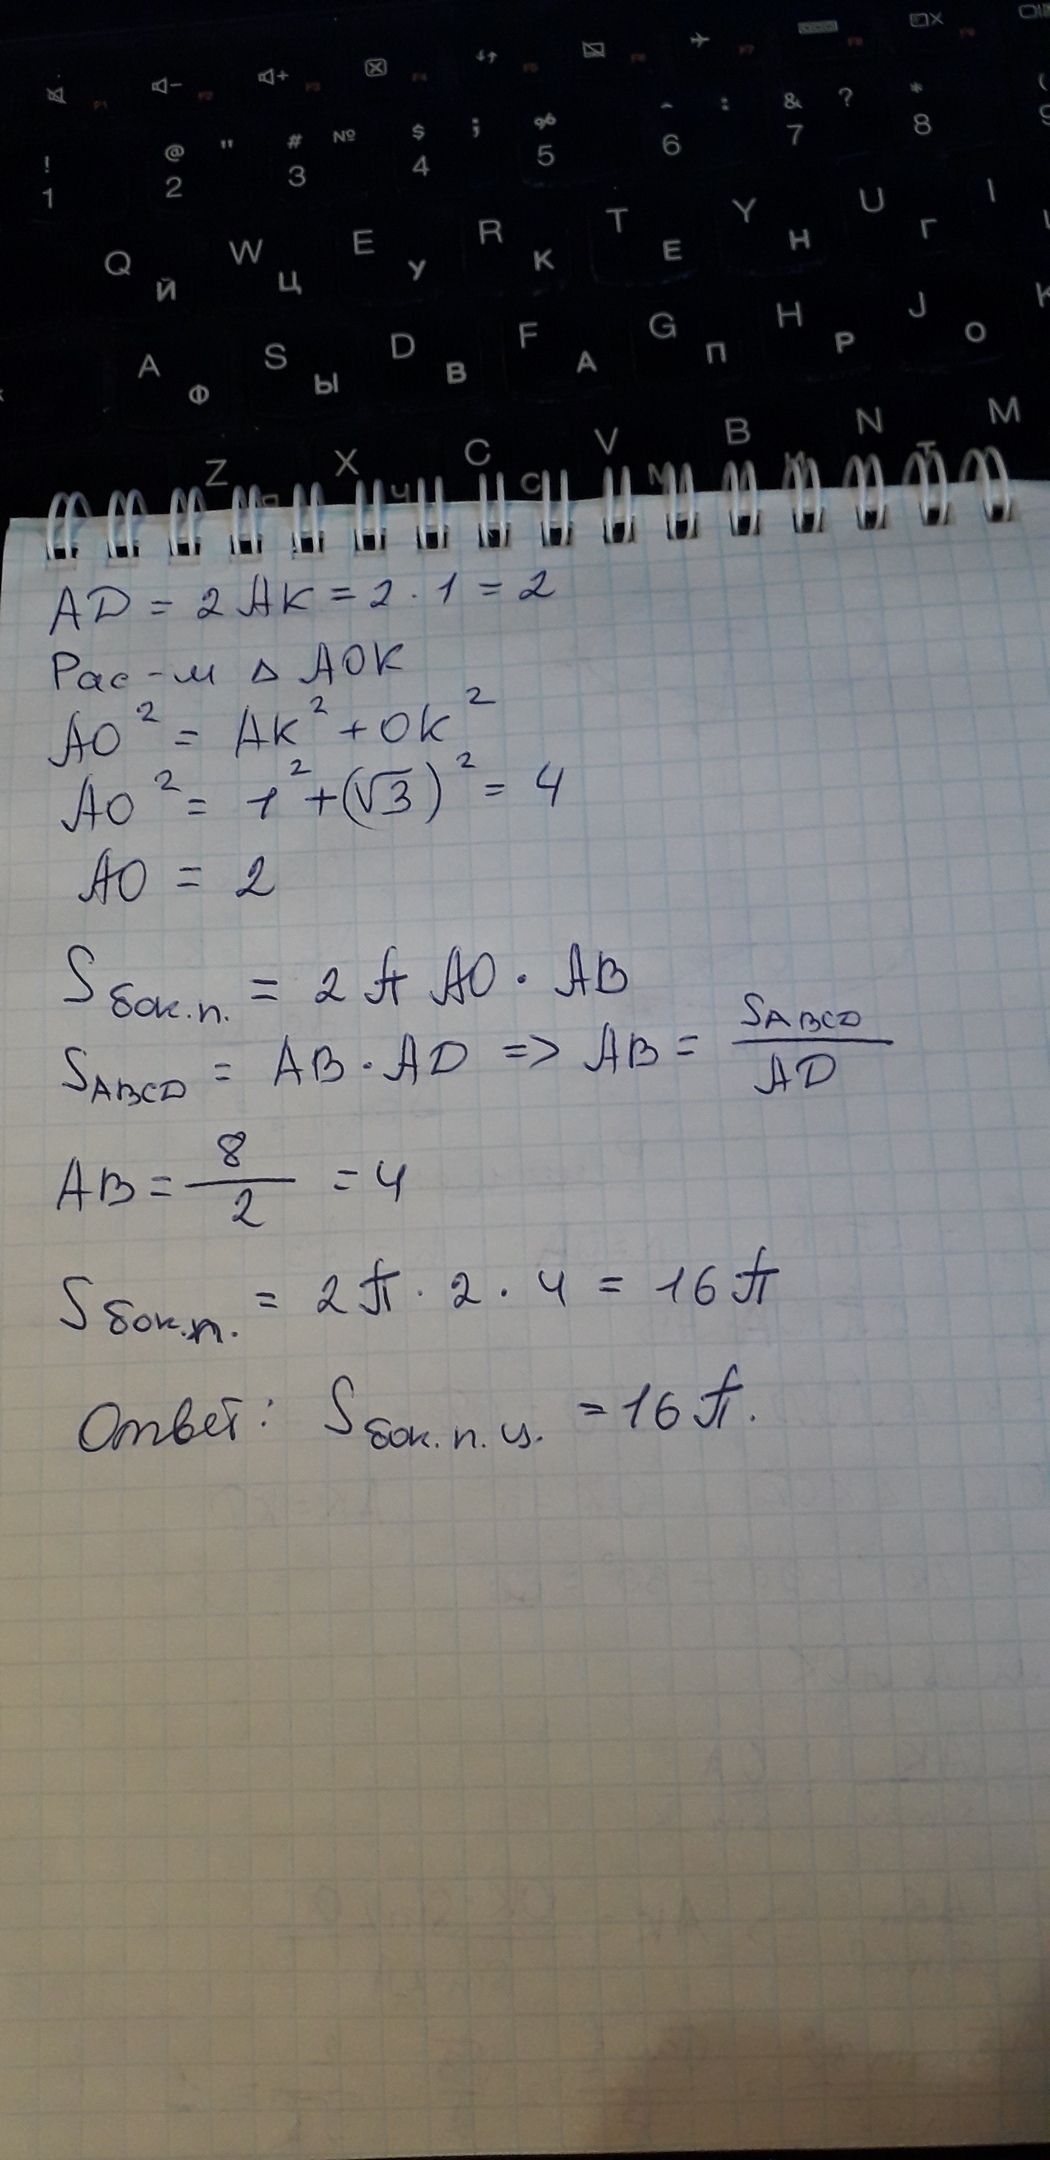 ! 1 @ 2 " # 3 № $ 4 ; % 5 ^ 6 : & 7 ? * 8 ( 9
Q Й W Ц E У R К T Е Y Н U Г I
A Ф S Ы D В F А G П H Р J О K
Z X Ч C С V М B N Т M
AD = 2 AK = 2 · 1 = 2
Рас-м Δ AOK
AO² = AK² + OK²
AO² = 1² + (√3)² = 4
AO = 2
Sбок.п. = 2π AO · AB
SABCD = AB · AD => AB = SABCD / AD
AB = 8 / 2 = 4
Sбок.п. = 2π · 2 · 4 = 16π
Ответ: Sбок.п.ц. = 16π.